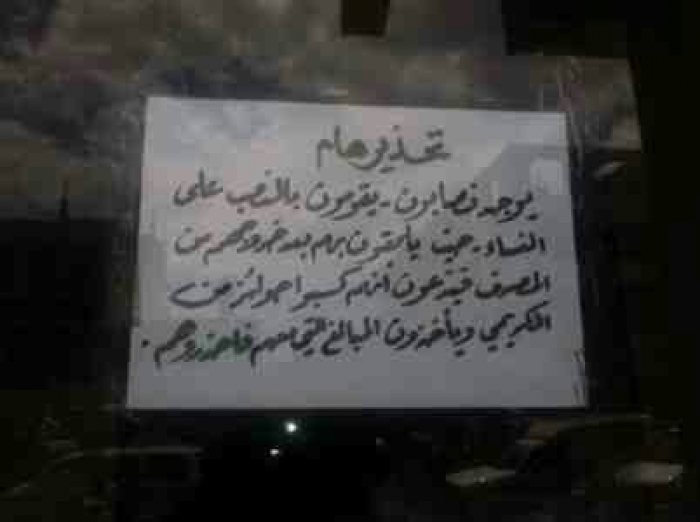 تحذير هام
يوجد نصابون - يقومون بالنصب على
النساء - حيث يلحقون بهم بعد خروجهم من
المصرف فيدعون أنهم كسبوا جوائز من
الكريمي ويأخذون المبالغ التي معهم فاحذروهم .